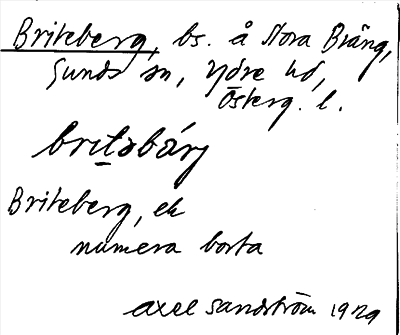 Briteberg, bs. å Stora Bräng,
Sunds sn, Ydre hd,
Österg. l.
britəbärj
Briteberg, ek
numera borta
Axel Sandström 1929